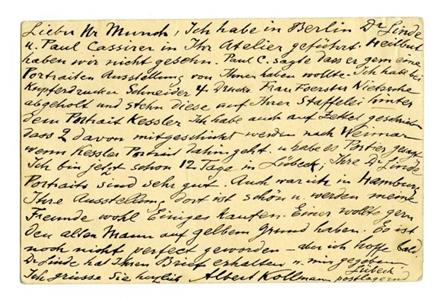 Lieber Hr Munch, Ich habe in Berlin Dr Linde
u. Paul Cassirer in Ihr Atelier geführt. Heilbut
haben wir nicht gesehn. Paul C. sagte dass er gern eine
Portraiten Ausstellung von Ihnen haben wollte. Ich habe bei
Kupferdrucker Schneider 4 Drucke Frau Foerster Nietzsche
abgeholt und stehn diese auf Ihrer Staffelei hinter
dem Portrait Kessler. Ich habe auch auf Zettel geschrieben
dass 2 davon mitgeschickt werden nach Weimar
wenn Kessler Portrait dahin geht. u habe es Portier gesagt
Ich bin jetzt schon 12 Tage in Lübeck, Ihre Dr Linde
Portraits sind sehr gut. Auch war ich in Hamburg
Ihre Ausstellung dort ist schön u. werden meine
Freunde wohl Einiges kaufen. Einer wollte gern
den alten Mann auf gelbem Grund haben. Es ist
noch nicht perfect geworden – aber ich hoffe bald
Dr Linde hat Ihren Brief erhalten u. mir gegeben
Ich grüsse Sie herzlich Albert Kollmann Lübeck postlagernd